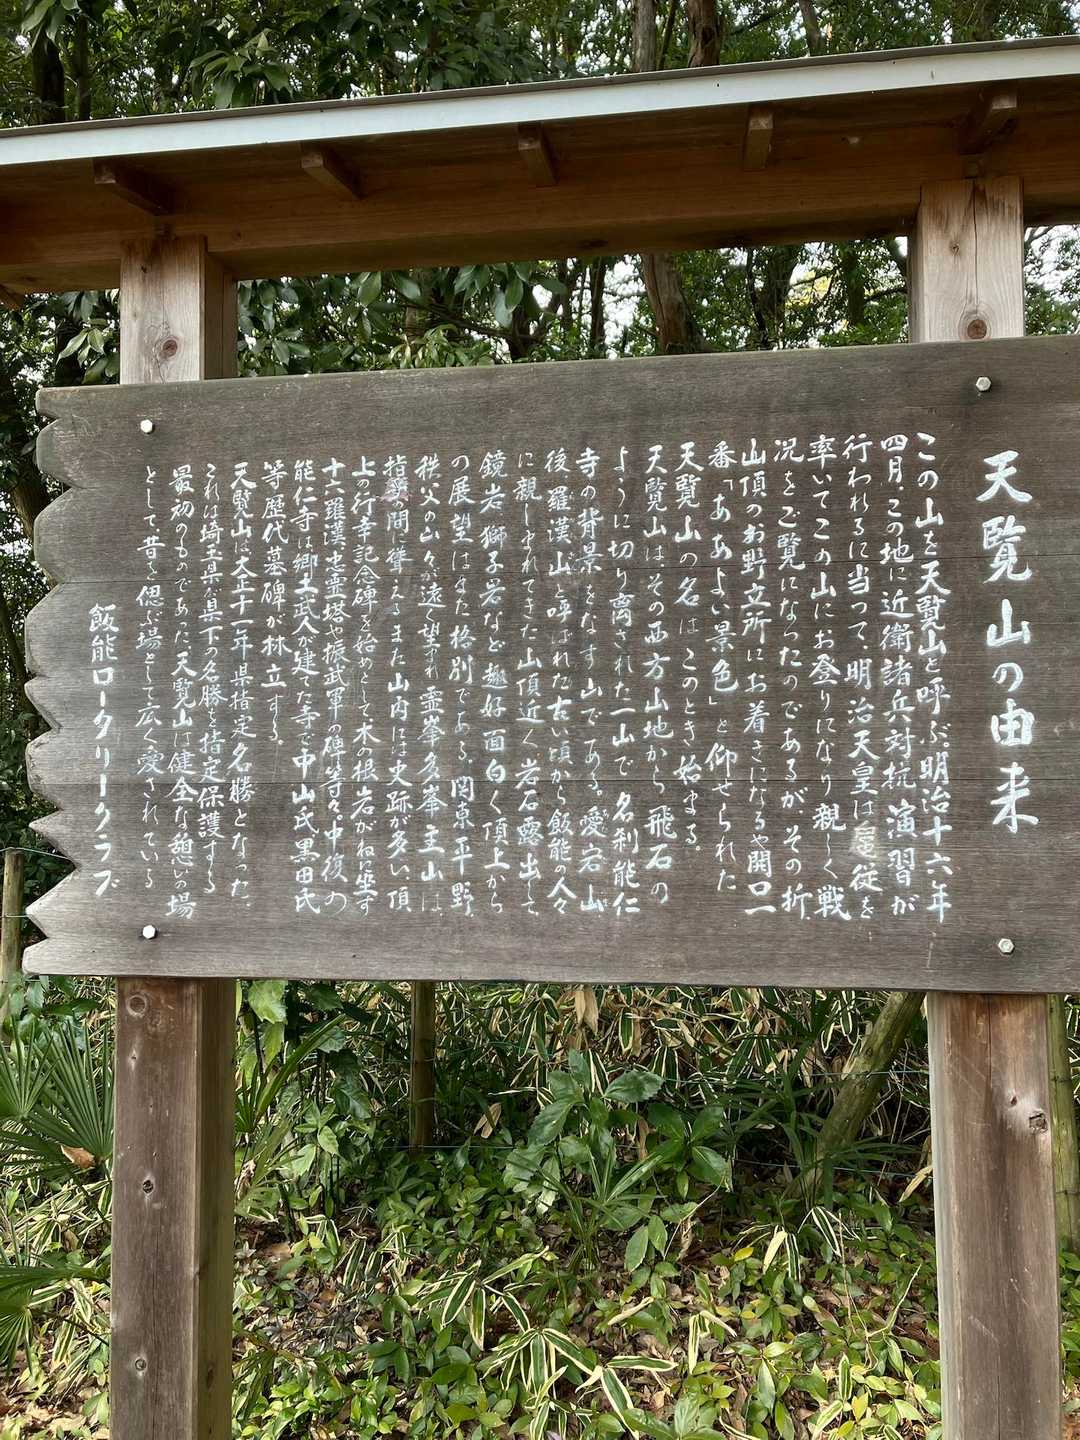 天覧山の由来
この山を天覧山と呼ぶ。明治十六年
四月、この地に近衛諸兵対抗演習が
行われるに当って、明治天皇は扈従を
率いてこの山にお登りになり親しく戦
況をご覧になったのであるが、その折、
山頂のお野立所にお着きになるや開口一
番「ああよい景色」と仰せられた
天覧山の名はこのとき始まる。
天覧山は、その西方山地から飛石の
ように切り離された一山で名刹能仁
寺の背景をなす山である。愛宕山
後、羅漢山と呼ばれた古い頃から飯能の人々
に親しまれてきた山頂近く岩石露出して
鏡岩獅子岩など趣好面白く頂上から
の展望はまた格別である。関東平野、
秩父の山々が遠く望まれ霊峯多峯主山は、
指呼の間に聳えるまた山内には史跡が多い、頂
上の行幸記念碑を始めとして木の根岩がねに坐す
十六羅漢忠霊塔や振武軍の碑等々。中復の
能仁寺は郷土武人が建てた寺で中山氏黒田氏
等歴代墓碑が林立する。
天覧山は大正十一年県指定名勝となった、
これは埼玉県が県下の名勝を指定保護する
最初のものであった、天覧山は健全な憩いの場
として、昔を偲ぶ場として広く愛されている
飯能ロータリークラブ